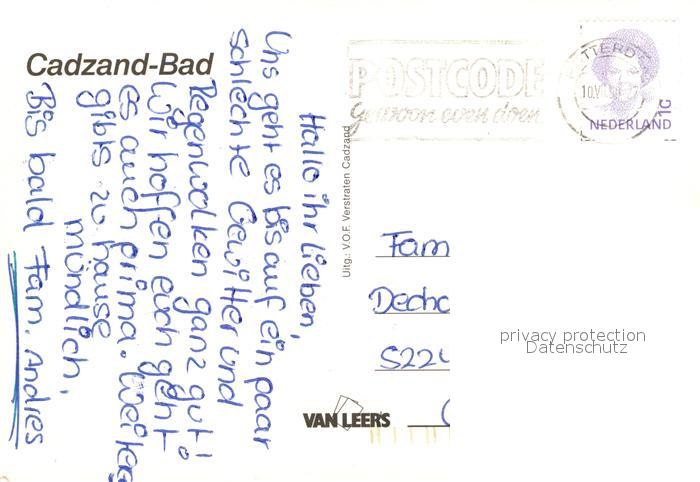 Cadzand-Bad
Hallo ihr Lieben,
Uns geht es bis auf ein paar
schlechte Gewitter und
Regenwolken ganz gut!
Wir hoffen euch geht
es auch prima. Weiteres
gibts zu hause
mündlich,
Bis bald Fam. Andries
Uitg.: V.O.F. Verstraten Cadzand
POSTCODE
Gewoon even doen
10.VI
NEDERLAND
Fam
Decho
5224
VAN LEER'S
privacy protection
Datenschutz